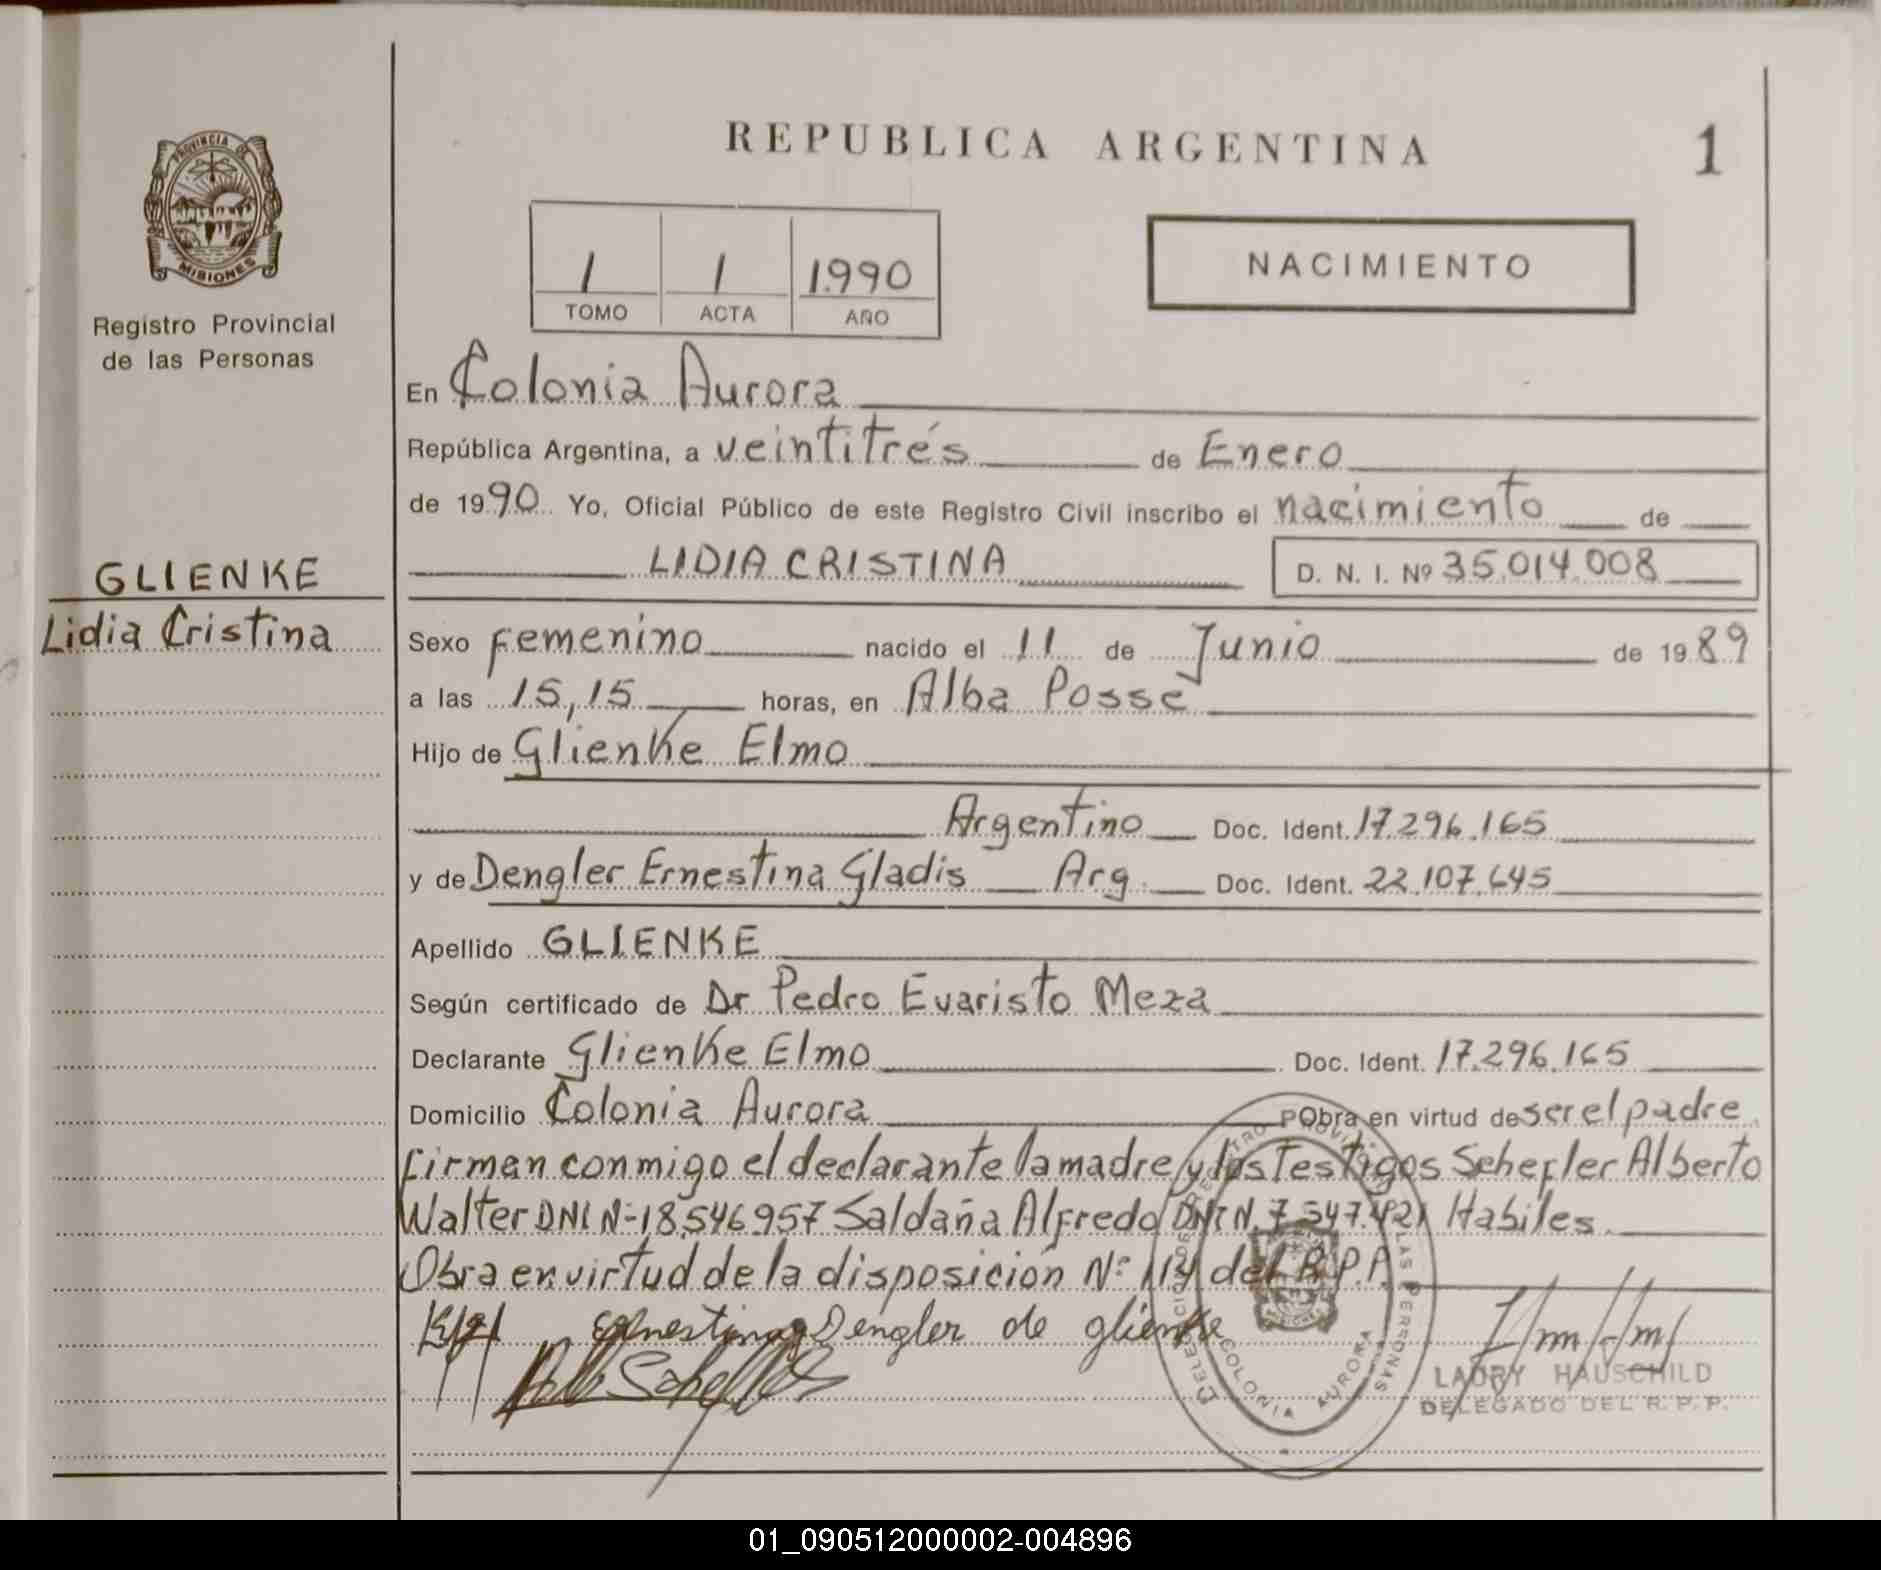 REPUBLICA ARGENTINA
1
PROVINCIA DE
MISIONES
Registro Provincial
de las Personas
1 1 1.990
TOMO ACTA AÑO
NACIMIENTO
En Colonia Aurora
República Argentina, a veintitrés de Enero
de 1990 Yo, Oficial Público de este Registro Civil inscribo el nacimiento de
LIDIA CRISTINA D. N. I. Nº 35.014.008
GLIENKE
Lidia Cristina
Sexo femenino nacido el 11 de Junio de 1989
a las 15,15 horas, en Alba Posse
Hijo de Glienke Elmo
Argentino Doc. Ident. 17.296.165
y de Dengler Ernestina Gladis Arg. Doc. Ident. 22.107.645
Apellido GLIENKE
Según certificado de Dr Pedro Evaristo Meza
Declarante Glienke Elmo Doc. Ident. 17.296.165
Domicilio Colonia Aurora Obra en virtud de ser el padre
firman conmigo el declarante la madre y los Testigos Schefler Alberto
Walter DNI Nº 18.546.957 Saldaña Alfredo DNI N. 7.547.421 Habiles.
Obra en virtud de la disposición Nº 114 del R.P.P.
Ernestina g Dengler de glienke
DELEGACION DE REGISTRO PROVINCIAL DE LAS PERSONAS
COLONIA AURORA
LAURY HAUSCHILD
DELEGADO DEL R. P. P.
01_090512000002-004896